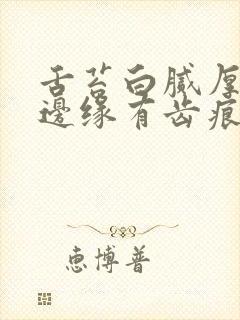 舌苔白腻厚
邊缘有齿痕
恵博普